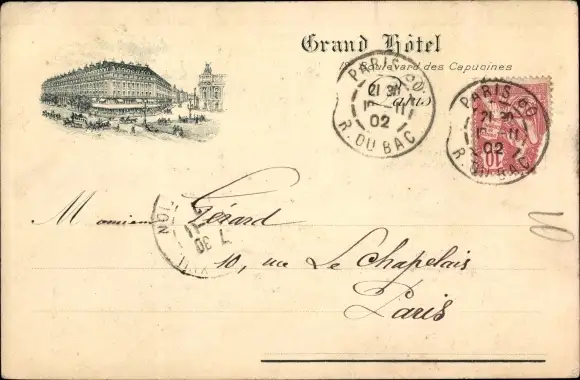 Grand Hôtel
12, Boulevard des Capucines
Paris
PARIS 60
21 30
11
02
R. DU BAC
PARIS 60
21 30
11
02
R. DU BAC
10
Monsieur Gérard
11
7 30
10, rue Le Chapelais
Paris